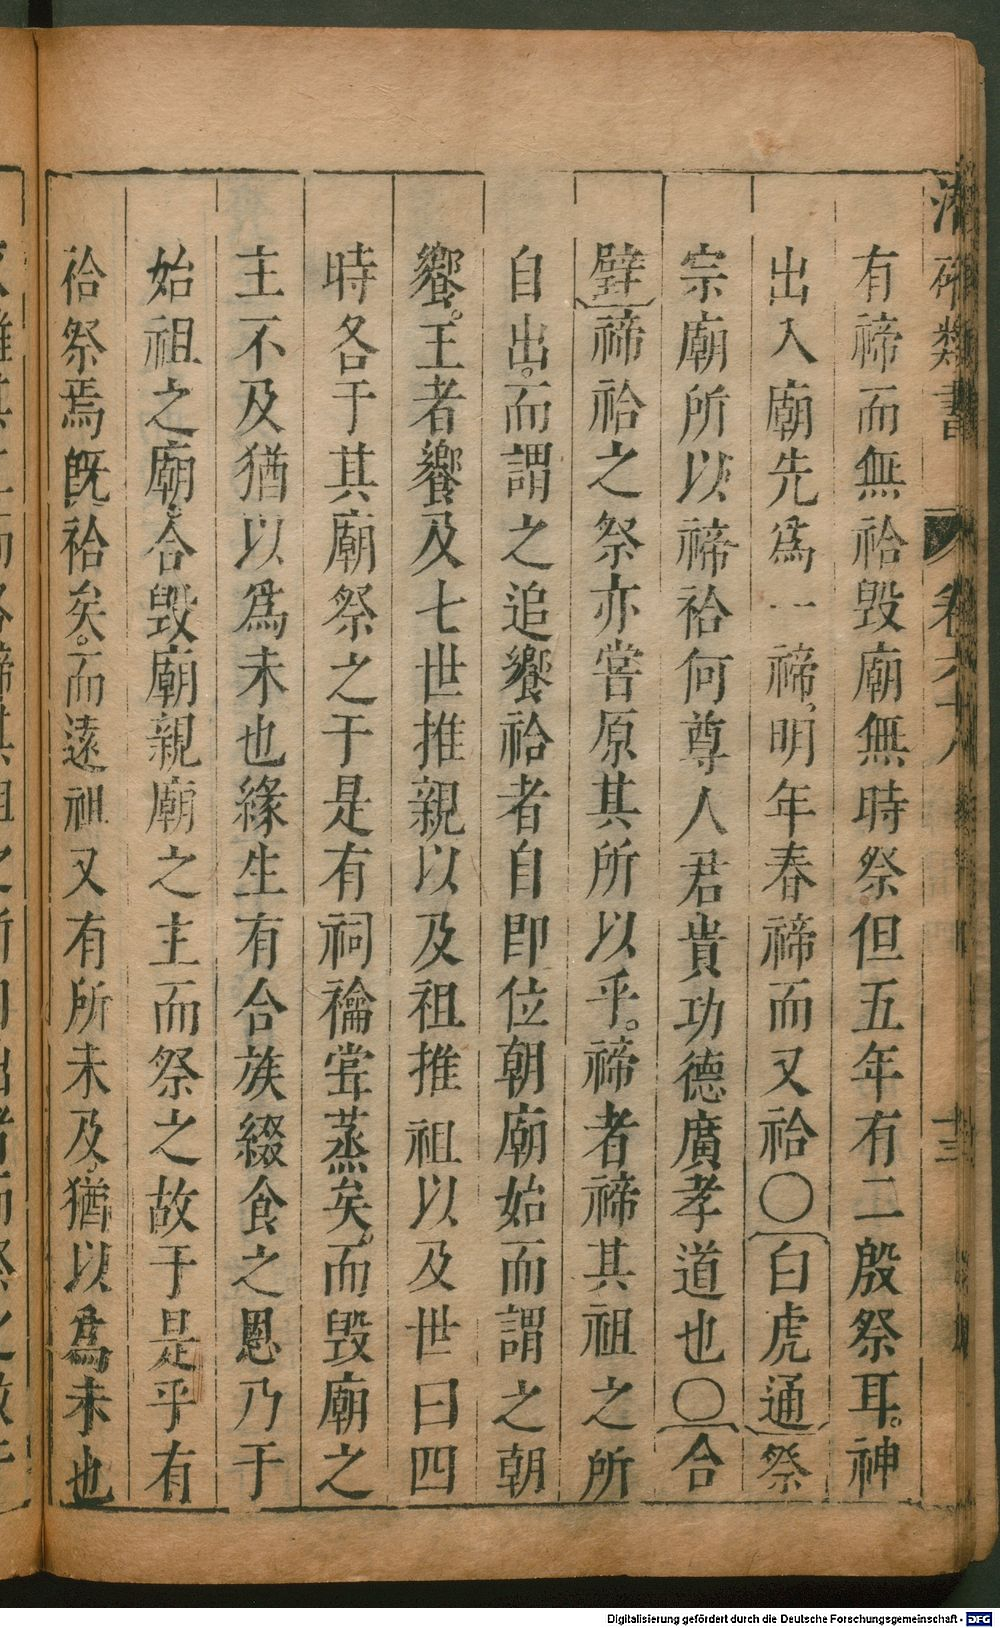 有禘而無祫毀廟無時祭但五年有二殷祭耳。神
出入廟先爲一禘,明年春禘而又祫〇白虎通祭
宗廟所以禘祫何尊人君貴功德廣孝道也〇合
璧禘祫之祭亦嘗原其所以乎。禘者禘其祖之所
自出。而謂之追饗祫者自即位朝廟始而謂之朝
饗。王者饗及七世推親以及祖推祖以及世曰四
時各于其廟祭之于是有祠禴嘗蒸矣。而毀廟之
主不及猶以爲未也緣生有合族綴食之恩乃于
始祖之廟。合毀廟親廟之主而祭之故于是乎有
祫祭焉旣祫矣。而遠祖又有所未及,猶以爲未也
類書 卷六十八 十三
Digitalisierung gefördert durch die Deutsche Forschungsgemeinschaft - DFG